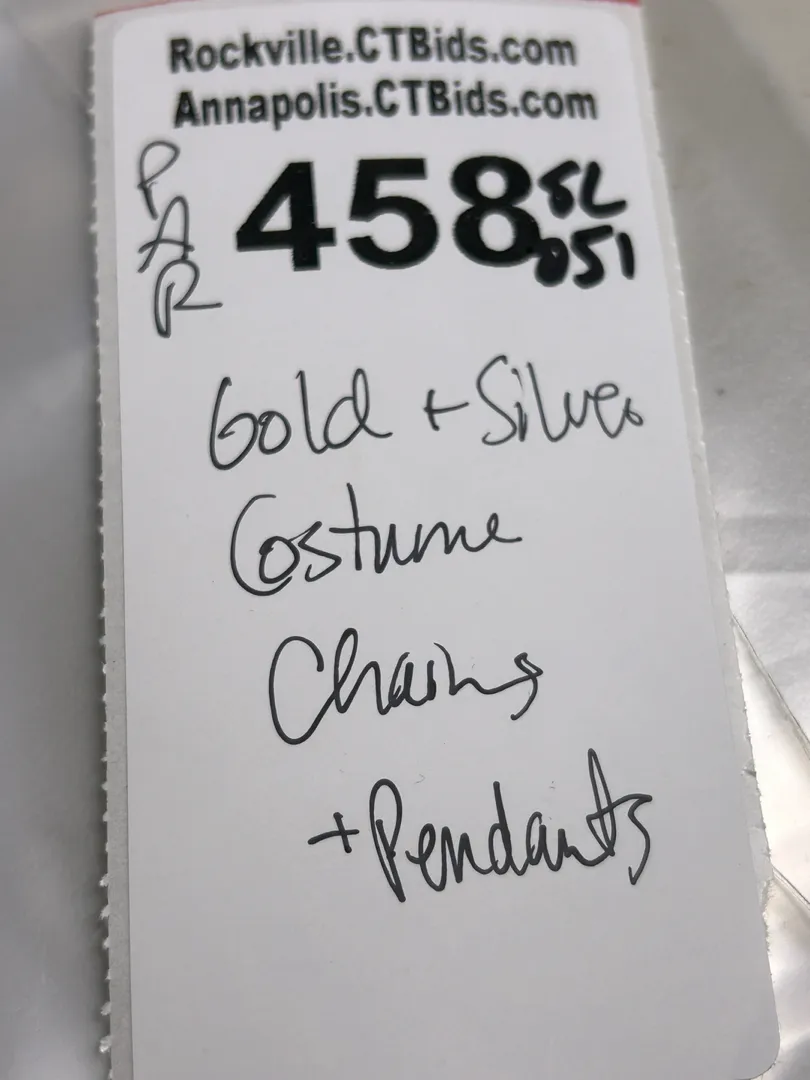 Rockville.CTBids.com
Annapolis.CTBids.com
PAR
458
SL
051
Gold + Silver
Costume
Chains
+ Pendants